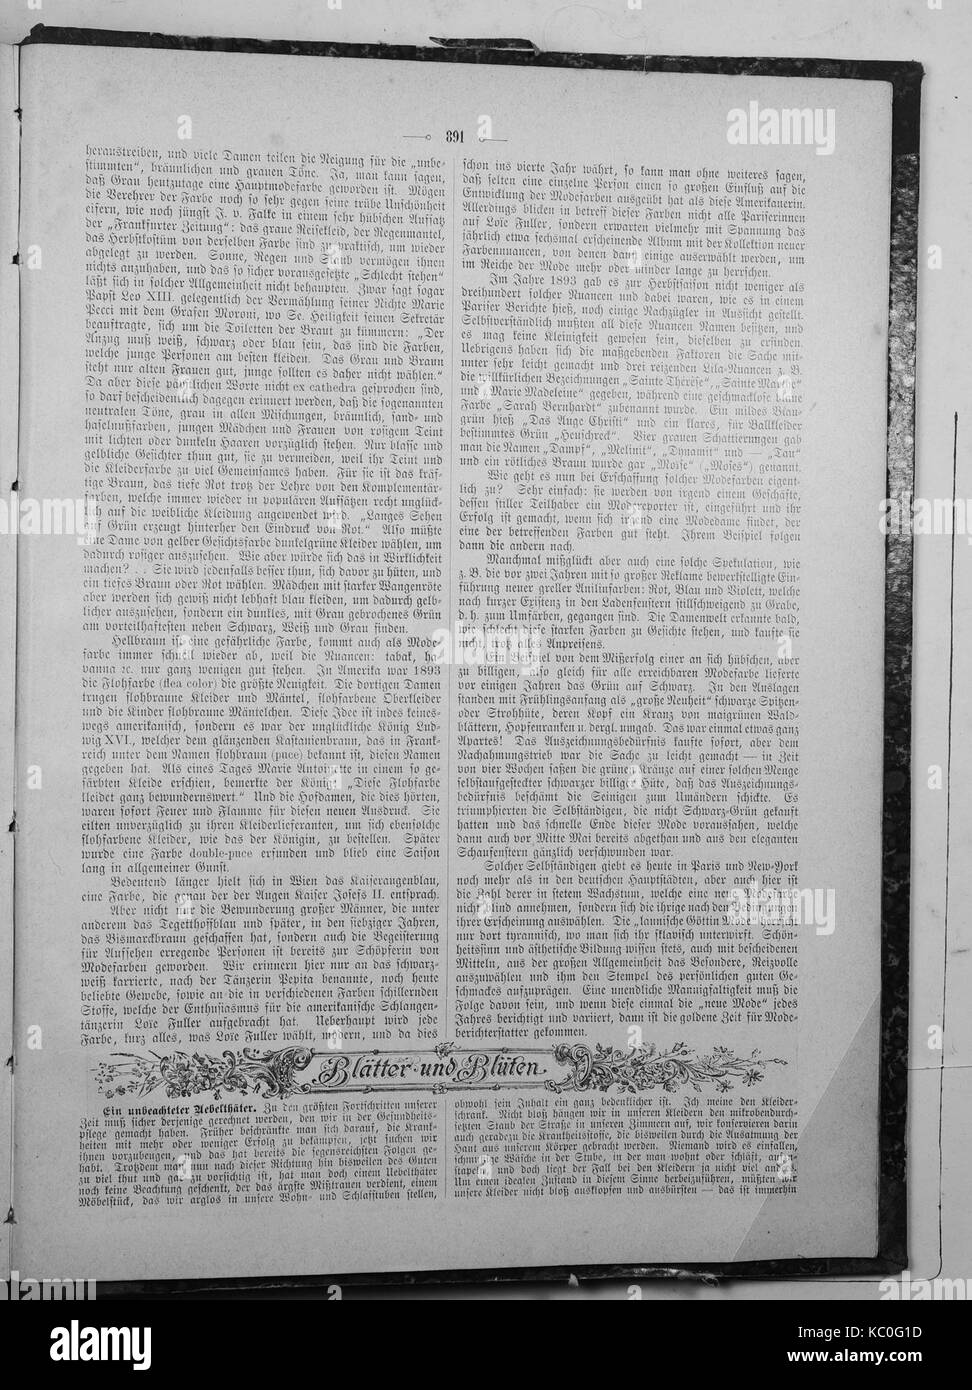 891
heraustreiben, und viele Damen teilen die Neigung für die „unbe-
stimmten“, bräunlichen und grauen Töne. Ja, man kann sagen,
daß Grau heutzutage eine Hauptmodefarbe geworden ist. Mögen
die Verehrer der Farbe noch so sehr gegen seine trübe Unschönheit
eifern, wie noch jüngst J. v. Falke in einem sehr hübschen Aufsatz
der „Frankfurter Zeitung“: das graue Reisekleid, der Regenmantel,
das Herbstkostüm von derselben Farbe sind zu praktisch, um wieder
abgelegt zu werden. Sonne, Regen und Staub vermögen ihnen
nichts anzuhaben, und das so sicher vorausgesetzte „Schlecht stehen“
läßt sich in solcher Allgemeinheit nicht behaupten. Zwar sagt sogar
Papst Leo XIII. gelegentlich der Vermählung seiner Nichte Marie
Pecci mit dem Grafen Moroni, wo Se. Heiligkeit seinen Sekretär
beauftragte, sich um die Toiletten der Braut zu kümmern: „Der
Anzug muß weiß, schwarz oder blau sein, das sind die Farben,
welche junge Personen am besten kleiden. Das Grau und Braun
steht nur alten Frauen gut, junge sollten es daher nicht wählen.“
Da aber diese päpstlichen Worte nicht ex cathedra gesprochen sind,
so darf bescheidentlich dagegen erinnert werden, daß die sogenannten
neutralen Töne, grau in allen Mischungen, bräunlich, sand- und
haselnußfarben, jungen Mädchen und Frauen von rosigem Teint
mit lichten oder dunkeln Haaren vorzüglich stehen. Nur blasse und
gelbliche Gesichter thun gut, sie zu vermeiden, weil ihr Teint und
die Kleiderfarbe zu viel Gemeinsames haben. Für sie ist das kräf-
tige Braun, das tiefe Rot trotz der Lehre von den Komplementär-
farben, welche immer wieder in populären Aufsätzen recht unglück-
lich auf die weibliche Kleidung angewendet wird. „Langes Sehen
auf Grün erzeugt hinterher den Eindruck von Rot.“ Also müßte
eine Dame von gelber Gesichtsfarbe dunkelgrüne Kleider wählen, um
dadurch rosiger auszusehen. Wie aber würde sich das in Wirklichkeit
machen? . . Sie wird jedenfalls besser thun, sich davor zu hüten, und
ein tiefes Braun oder Rot wählen. Mädchen mit starker Wangenröte
aber werden sich gewiß nicht lebhaft blau kleiden, um dadurch gelb-
licher auszusehen, sondern ein dunkles, mit Grau gebrochenes Grün
am vorteilhaftesten neben Schwarz, Weiß und Grau finden.
Hellbraun ist eine gefährliche Farbe, kommt auch als Mode-
farbe immer schnell wieder ab, weil die Nuancen: tabak, ha-
vanna ꝛc. nur ganz wenigen gut stehen. In Amerika war 1893
die Flohfarbe (flea color) die größte Neuigkeit. Die dortigen Damen
trugen flohbraune Kleider und Mäntel, flohfarbene Oberkleider
und die Kinder flohbraune Mäntelchen. Diese Idee ist indes keines-
wegs amerikanisch, sondern es war der unglückliche König Lud-
wig XVI., welcher dem glänzenden Kastanienbraun, das in Frank-
reich unter dem Namen flohbraun (puce) bekannt ist, diesen Namen
gegeben hat. Als eines Tages Marie Antoinette in einem so ge-
färbten Kleide erschien, bemerkte der König: „Diese Flohfarbe
kleidet ganz bewundernswert.“ Und die Hofdamen, die dies hörten,
waren sofort Feuer und Flamme für diesen neuen Ausdruck. Sie
eilten unverzüglich zu ihren Kleiderlieferanten, um sich ebensolche
flohfarbene Kleider, wie das der Königin, zu bestellen. Später
wurde eine Farbe double-puce erfunden und blieb eine Saison
lang in allgemeiner Gunst.
Bedeutend länger hielt sich in Wien das Kaiseraugenblau,
eine Farbe, die genau der der Augen Kaiser Josefs II. entsprach.
Aber nicht nur die Bewunderung großer Männer, die unter
anderem das Tegetthoffblau und später, in den siebziger Jahren,
das Bismarckbraun geschaffen hat, sondern auch die Begeisterung
für Aufsehen erregende Personen ist bereits zur Schöpferin von
Modefarben geworden. Wir erinnern hier nur an das schwarz-
weiß karrierte, nach der Tänzerin Pepita benannte, noch heute
beliebte Gewebe, sowie an die in verschiedenen Farben schillernden
Stoffe, welche der Enthusiasmus für die amerikanische Schlangen-
tänzerin Loïe Fuller aufgebracht hat. Ueberhaupt wird jede
Farbe, kurz alles, was Loïe Fuller wählt, modern, und da dies
schon ins vierte Jahr währt, so kann man ohne weiteres sagen,
daß selten eine einzelne Person einen so großen Einfluß auf die
Entwicklung der Modefarben ausgeübt hat als diese Amerikanerin.
Allerdings blicken in betreff dieser Farben nicht alle Pariserinnen
auf Loïe Fuller, sondern erwarten vielmehr mit Spannung das
jährlich etwa sechsmal erscheinende Album mit der Kollektion neuer
Farbennuancen, von denen dann einige auserwählt werden, um
im Reiche der Mode mehr oder minder lange zu herrschen.
Im Jahre 1893 gab es zur Herbstsaison nicht weniger als
dreihundert solcher Nuancen und dabei waren, wie es in einem
Pariser Berichte hieß, noch einige Nachzügler in Aussicht gestellt.
Selbstverständlich mußten all diese Nuancen Namen besitzen, und
es mag keine Kleinigkeit gewesen sein, dieselben zu erfinden.
Uebrigens haben sich die maßgebenden Faktoren die Sache mit-
unter sehr leicht gemacht und drei reizenden Lila-Nuancen z. B.
die willkürlichen Bezeichnungen „Sainte Thérèse“, „Sainte Marthe“
und „Marie Madeleine“ gegeben, während eine geschmacklose kleine
Farbe „Sarah Bernhardt“ zubenannt wurde. Ein mildes Blau-
grün hieß „Das Auge Christi“ und ein klares, für Ballkleider
bestimmtes Grün „Heuschreck“. Vier grauen Schattierungen gab
man die Namen „Dampf“, „Melinit“, „Dynamit“ und — „Tau“
und ein rötliches Braun wurde gar „Moïse“ („Moses“) genannt.
Wie geht es nun bei Erschaffung solcher Modefarben eigent-
lich zu? Sehr einfach: sie werden von irgend einem Geschäfte,
dessen stiller Teilhaber ein Modereporter ist, eingeführt und ihr
Erfolg ist gemacht, wenn sich irgend eine Modedame findet, der
eine der betreffenden Farben gut steht. Ihrem Beispiel folgen
dann die andern nach.
Manchmal mißglückt aber auch eine solche Spekulation, wie
z. B. die vor zwei Jahren mit so großer Reklame bewerkstelligte Ein-
führung neuer greller Anilinfarben: Rot, Blau und Violett, welche
nach kurzer Existenz in den Ladenfenstern stillschweigend zu Grabe,
d. h. zum Umfärben, gegangen sind. Die Damenwelt erkannte bald,
wie schlecht diese starken Farben zu Gesichte stehen, und kaufte sie
nicht, trotz alles Anpreisens.
Ein Beispiel von dem Mißerfolg einer an sich hübschen, aber
zu billigen, also gleich für alle erreichbaren Modefarbe lieferte
vor einigen Jahren das Grün auf Schwarz. In den Auslagen
standen mit Frühlingsanfang als „große Neuheit“ schwarze Spitzen-
oder Strohhüte, deren Kopf ein Kranz von maigrünen Wald-
blättern, Hopfenranken u. dergl. umgab. Das war einmal etwas ganz
Apartes! Das Auszeichnungsbedürfnis kaufte sofort, aber dem
Nachahmungstrieb war die Sache zu leicht gemacht — in Zeit
von vier Wochen saßen die grünen Kränze auf einer solchen Menge
selbstaufgesteckter schwarzer billiger Hüte, daß das Auszeichnungs-
bedürfnis beschämt die Seinigen zum Umändern schickte. Es
triumphierten die Selbständigen, die nicht Schwarz-Grün gekauft
hatten und das schnelle Ende dieser Mode voraussahen, welche
dann auch vor Mitte Mai bereits abgethan und aus den eleganten
Schaufenstern gänzlich verschwunden war.
Solcher Selbständigen giebt es heute in Paris und New-York
noch mehr als in den deutschen Hauptstädten, aber auch hier ist
die Zahl derer in stetem Wachstum, welche eine neue Modefarbe
nicht blind annehmen, sondern sich die ihrige nach den Bedingungen
ihrer Erscheinung auswählen. Die „launische Göttin Mode“ herrscht
nur dort tyrannisch, wo man sich ihr sklavisch unterwirft. Schön-
heitssinn und ästhetische Bildung wissen stets, auch mit bescheidenen
Mitteln, aus der großen Allgemeinheit das Besondere, Reizvolle
auszuwählen und ihm den Stempel des persönlichen guten Ge-
schmackes aufzuprägen. Eine unendliche Mannigfaltigkeit muß die
Folge davon sein, und wenn diese einmal die „neue Mode“ jedes
Jahres berichtigt und variiert, dann ist die goldene Zeit für Mode-
berichterstatter gekommen.
Blätter und Blüten
Ein unbeachteter Uebelthäter. Zu den größten Fortschritten unserer
Zeit muß sicher derjenige gerechnet werden, den wir in der Gesundheits-
pflege gemacht haben. Früher beschränkte man sich darauf, die Krank-
heiten mit mehr oder weniger Erfolg zu bekämpfen, jetzt suchen wir
ihnen vorzubeugen, und das hat bereits die segensreichsten Folgen ge-
habt. Trotzdem man nun nach dieser Richtung hin bisweilen des Guten
zu viel thut und gar zu vorsichtig ist, hat man doch einem Uebelthäter
noch keine Beachtung geschenkt, der das ärgste Mißtrauen verdient, einem
Möbelstück, das wir arglos in unsere Wohn- und Schlafstuben stellen,
obwohl sein Inhalt ein ganz bedenklicher ist. Ich meine den Kleider-
schrank. Nicht bloß hängen wir in unseren Kleidern den mikrobendurch-
setzten Staub der Straße in unseren Zimmern auf, wir konservieren darin
auch geradezu die Krankheitsstoffe, die bisweilen durch die Ausatmung der
Haut aus unserem Körper gebracht werden. Niemand wird es einfallen,
schmutzige Wäsche in der Stube, in der man wohnt oder schläft, aufzu-
stapeln, und doch liegt der Fall bei den Kleidern ja nicht viel anders.
Um einen idealen Zustand in diesem Sinne herbeizuführen, müßten wir
unsere Kleider nicht bloß ausklopfen und ausbürsten — das ist immerhin
alamy stock photo
KC0G1D
www.alamy.com